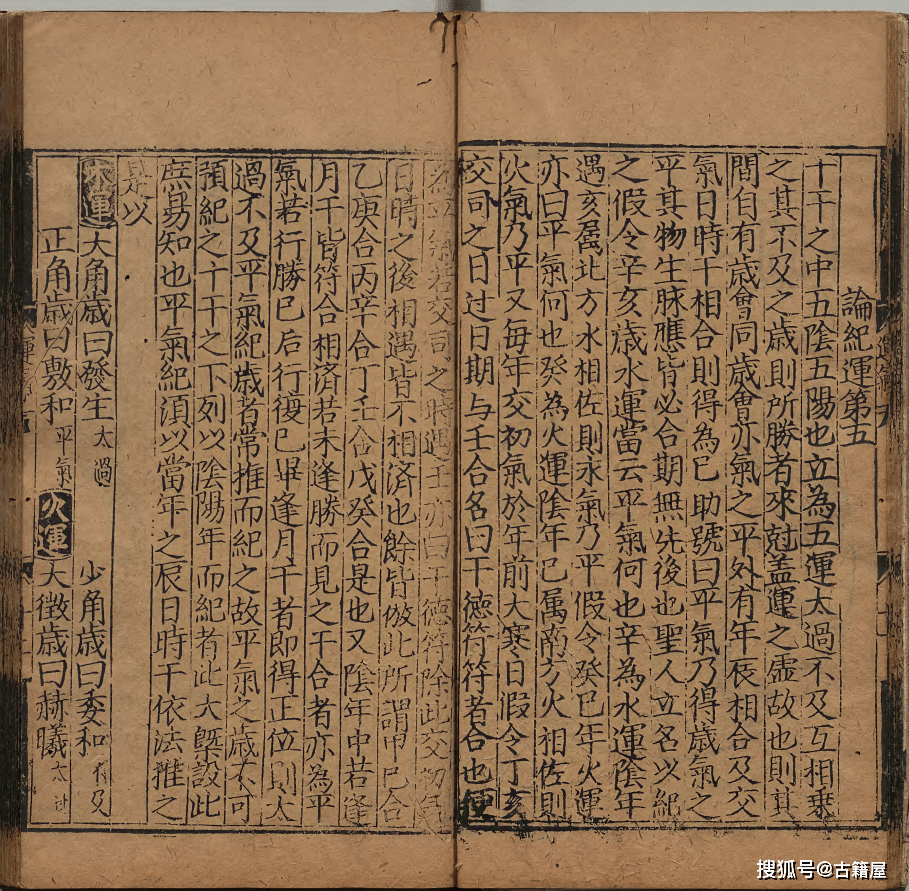 論紀運第五
十干之中五陰五陽也立為五運太過不及互相乗
之其不及之歲則所勝者來尅盖運之虛故也則其
間自有歲會同歲會亦氣之平外有年辰相合及交
氣日時干相合則得為已助號曰平氣乃得歲氣之
平其物生脉應皆必合期無先後也聖人立名以紀
之假令辛亥歲水運當云平氣何也辛為水運陰年
遇亥属北方水相佐則水氣乃平假令癸巳年火運
亦曰平氣何也癸為火運陰年巳属南方火相佐則
火氣乃平又每年交初氣於年前大寒日假令丁亥
交司之日过日期与壬合名曰干德符符者合也便
為平氣若交司之時遇壬亦曰干德符除此交初氣
日時之後相遇皆不相済也餘皆倣此所謂甲已合
乙庚合丙辛合丁壬合戊癸合是也又陰年中若逢
月干皆符合相済若未逢勝而見之干合者亦為平
氣若行勝已后行復已畢逢月干者即得正位則太
過不及平氣紀歲者常推而紀之故平氣之歲不可
預紀之十干之下列以陰陽年而紀者此大槩設此
庶易知也平氣紀須以當年之辰日時干依法推之
是以
木運 大角歲曰發生 太過 少角歲曰委和 不及
正角歲曰敷和 平氣 火運 大徵歲曰赫曦 太过
搜狐号@古籍屋